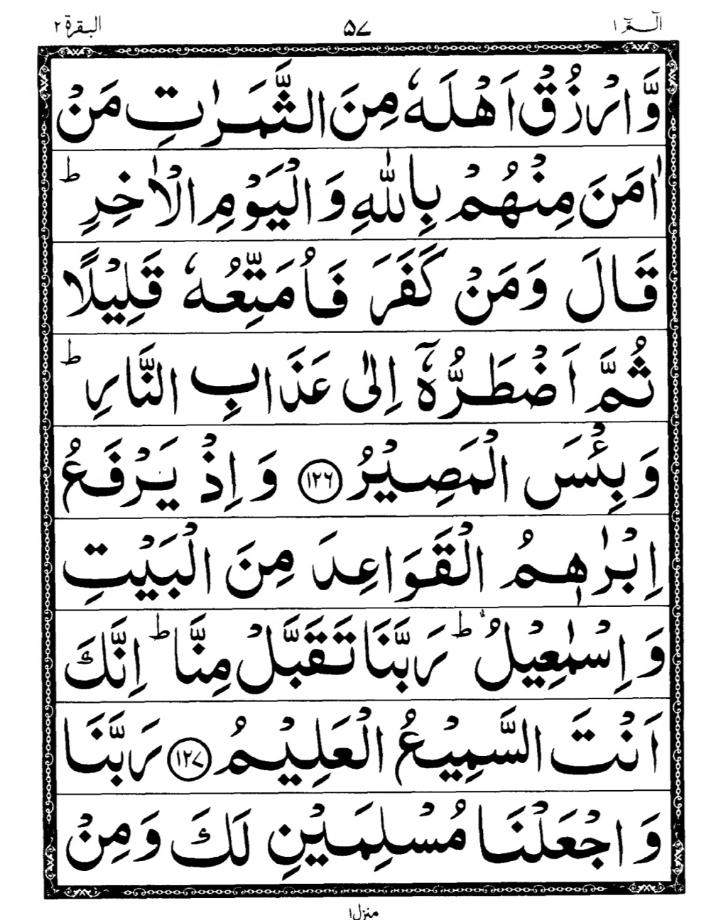 الٓمّٓ ١ ٥٧ البقرة ٢
وَّارْزُقْ اَهْلَهٗ مِنَ الثَّمَرٰتِ مَنْ
اٰمَنَ مِنْهُمْ بِاللّٰهِ وَالْيَوْمِ الْاٰخِرِ ؕ
قَالَ وَمَنْ كَفَرَ فَاُمَتِّعُهٗ قَلِيْلًا
ثُمَّ اَضْطَرُّهٗۤ اِلٰى عَذَابِ النَّارِ ؕ
وَبِئْسَ الْمَصِيْرُ ﴿۱۲۶﴾ وَاِذْ يَرْفَعُ
اِبْرٰهٖمُ الْقَوَاعِدَ مِنَ الْبَيْتِ
وَاِسْمٰعِيْلُ ؕ رَبَّنَا تَقَبَّلْ مِنَّا ؕ اِنَّكَ
اَنْتَ السَّمِيْعُ الْعَلِيْمُ ﴿۱۲۷﴾ رَبَّنَا
وَاجْعَلْنَا مُسْلِمَيْنِ لَكَ وَمِنْ
منزل ١